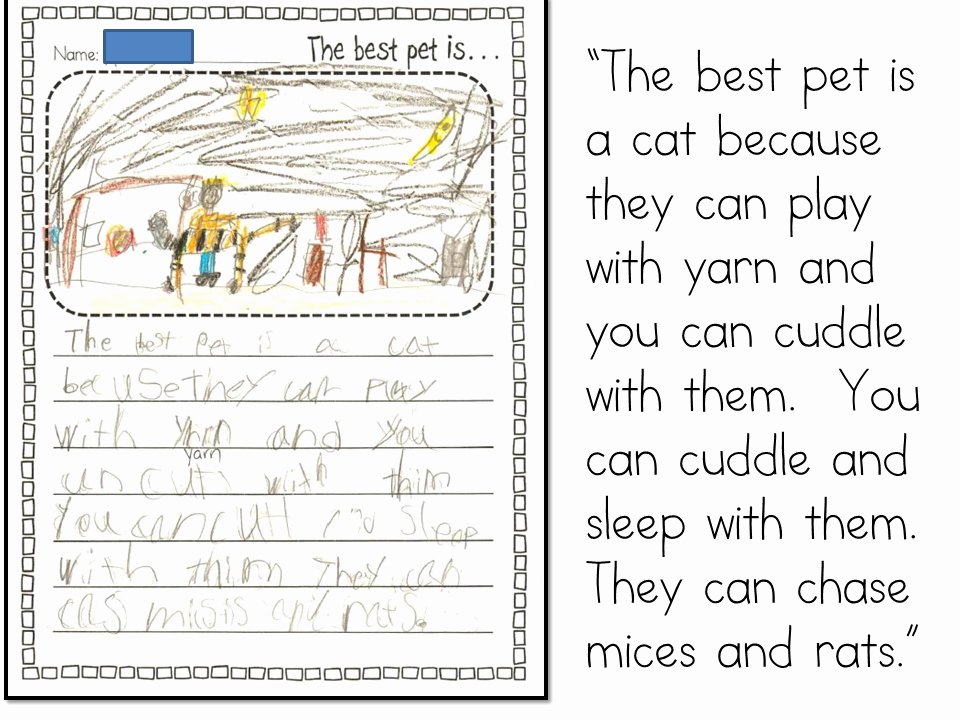 Name:
The best pet is...
The best pet is a cat
becuSethey can play
with yhrn and you
yarn
can cutt with thim
you can cutt and sleep
with thim They can
cas misis and rats.
"The best pet is
a cat because
they can play
with yarn and
you can cuddle
with them. You
can cuddle and
sleep with them.
They can chase
mices and rats."